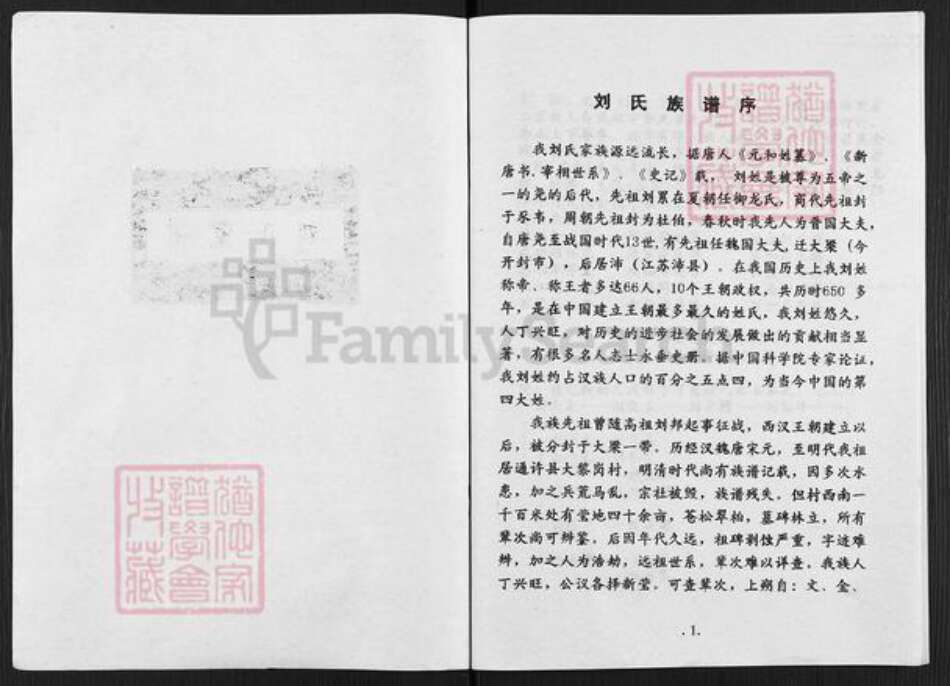 刘氏族谱序
我刘氏家族源远流长，据唐人《元和姓纂》、《新
唐书.宰相世系》、《史记》载， 刘姓是被尊为五帝之
一的尧的后代，先祖刘累在夏朝任御龙氏，商代先祖封
于豕韦，周朝先祖封为杜伯，春秋时我先人为晋国大夫，
自唐尧至战国时代13世,有先祖任魏国大夫,迁大梁（今
开封市），后居沛（江苏沛县）。在我国历史上我刘姓
称帝、称王者多达66人，10个王朝政权，共历时650 多
年，是在中国建立王朝最多最久的姓氏，我刘姓悠久，
人丁兴旺，对历史的进步社会的发展做出的贡献相当显
著，有很多名人志士永垂史册。据中国科学院专家论证，
我刘姓约占汉族人口的百分之五点四，为当今中国的第
四大姓。
我族先祖曾随高祖刘邦起事征战，西汉王朝建立以
后，被分封于大梁一带。历经汉魏唐宋元，至明代我祖
居通许县大黎岗村，明清时代尚有族谱记载，因多次水
患，加之兵荒马乱，宗社被毁，族谱残失。但村西南一
千百米处有莹地四十余亩，苍松翠柏，墓碑林立，所有
辈次尚可辨鉴。后因年代久远，祖碑剥蚀严重，字迹难
辨，加之人为浩劫，远祖世系，辈次难以详查。我族人
丁兴旺，公议各择新莹。可查辈次，上朔自：文、金、
.1.
FamilySearch